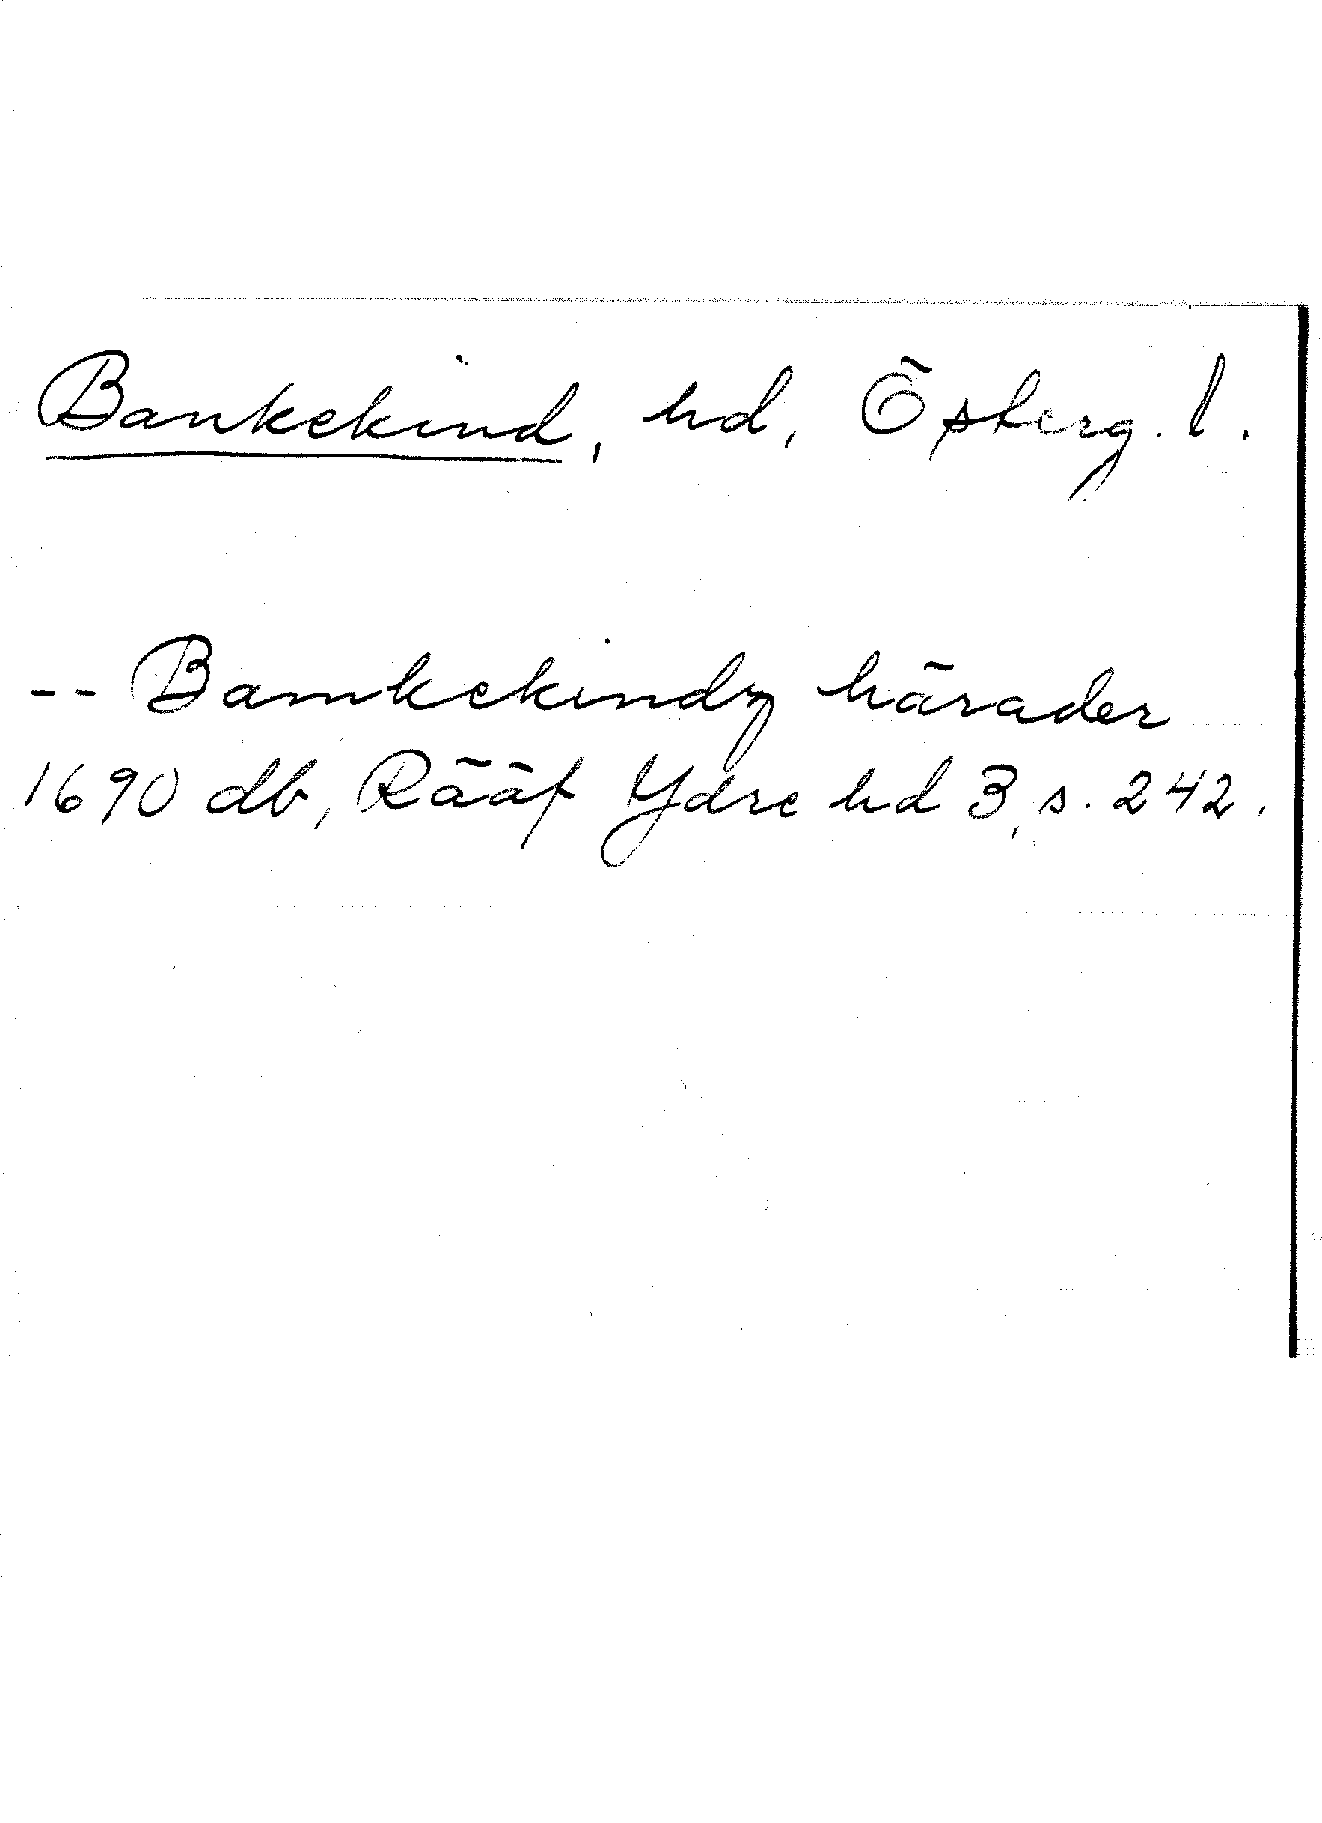 Bankekind, hd, Österg. l.
-- Bamkekindz härader
1690 db, Rääf Ydre hd 3, s. 242.